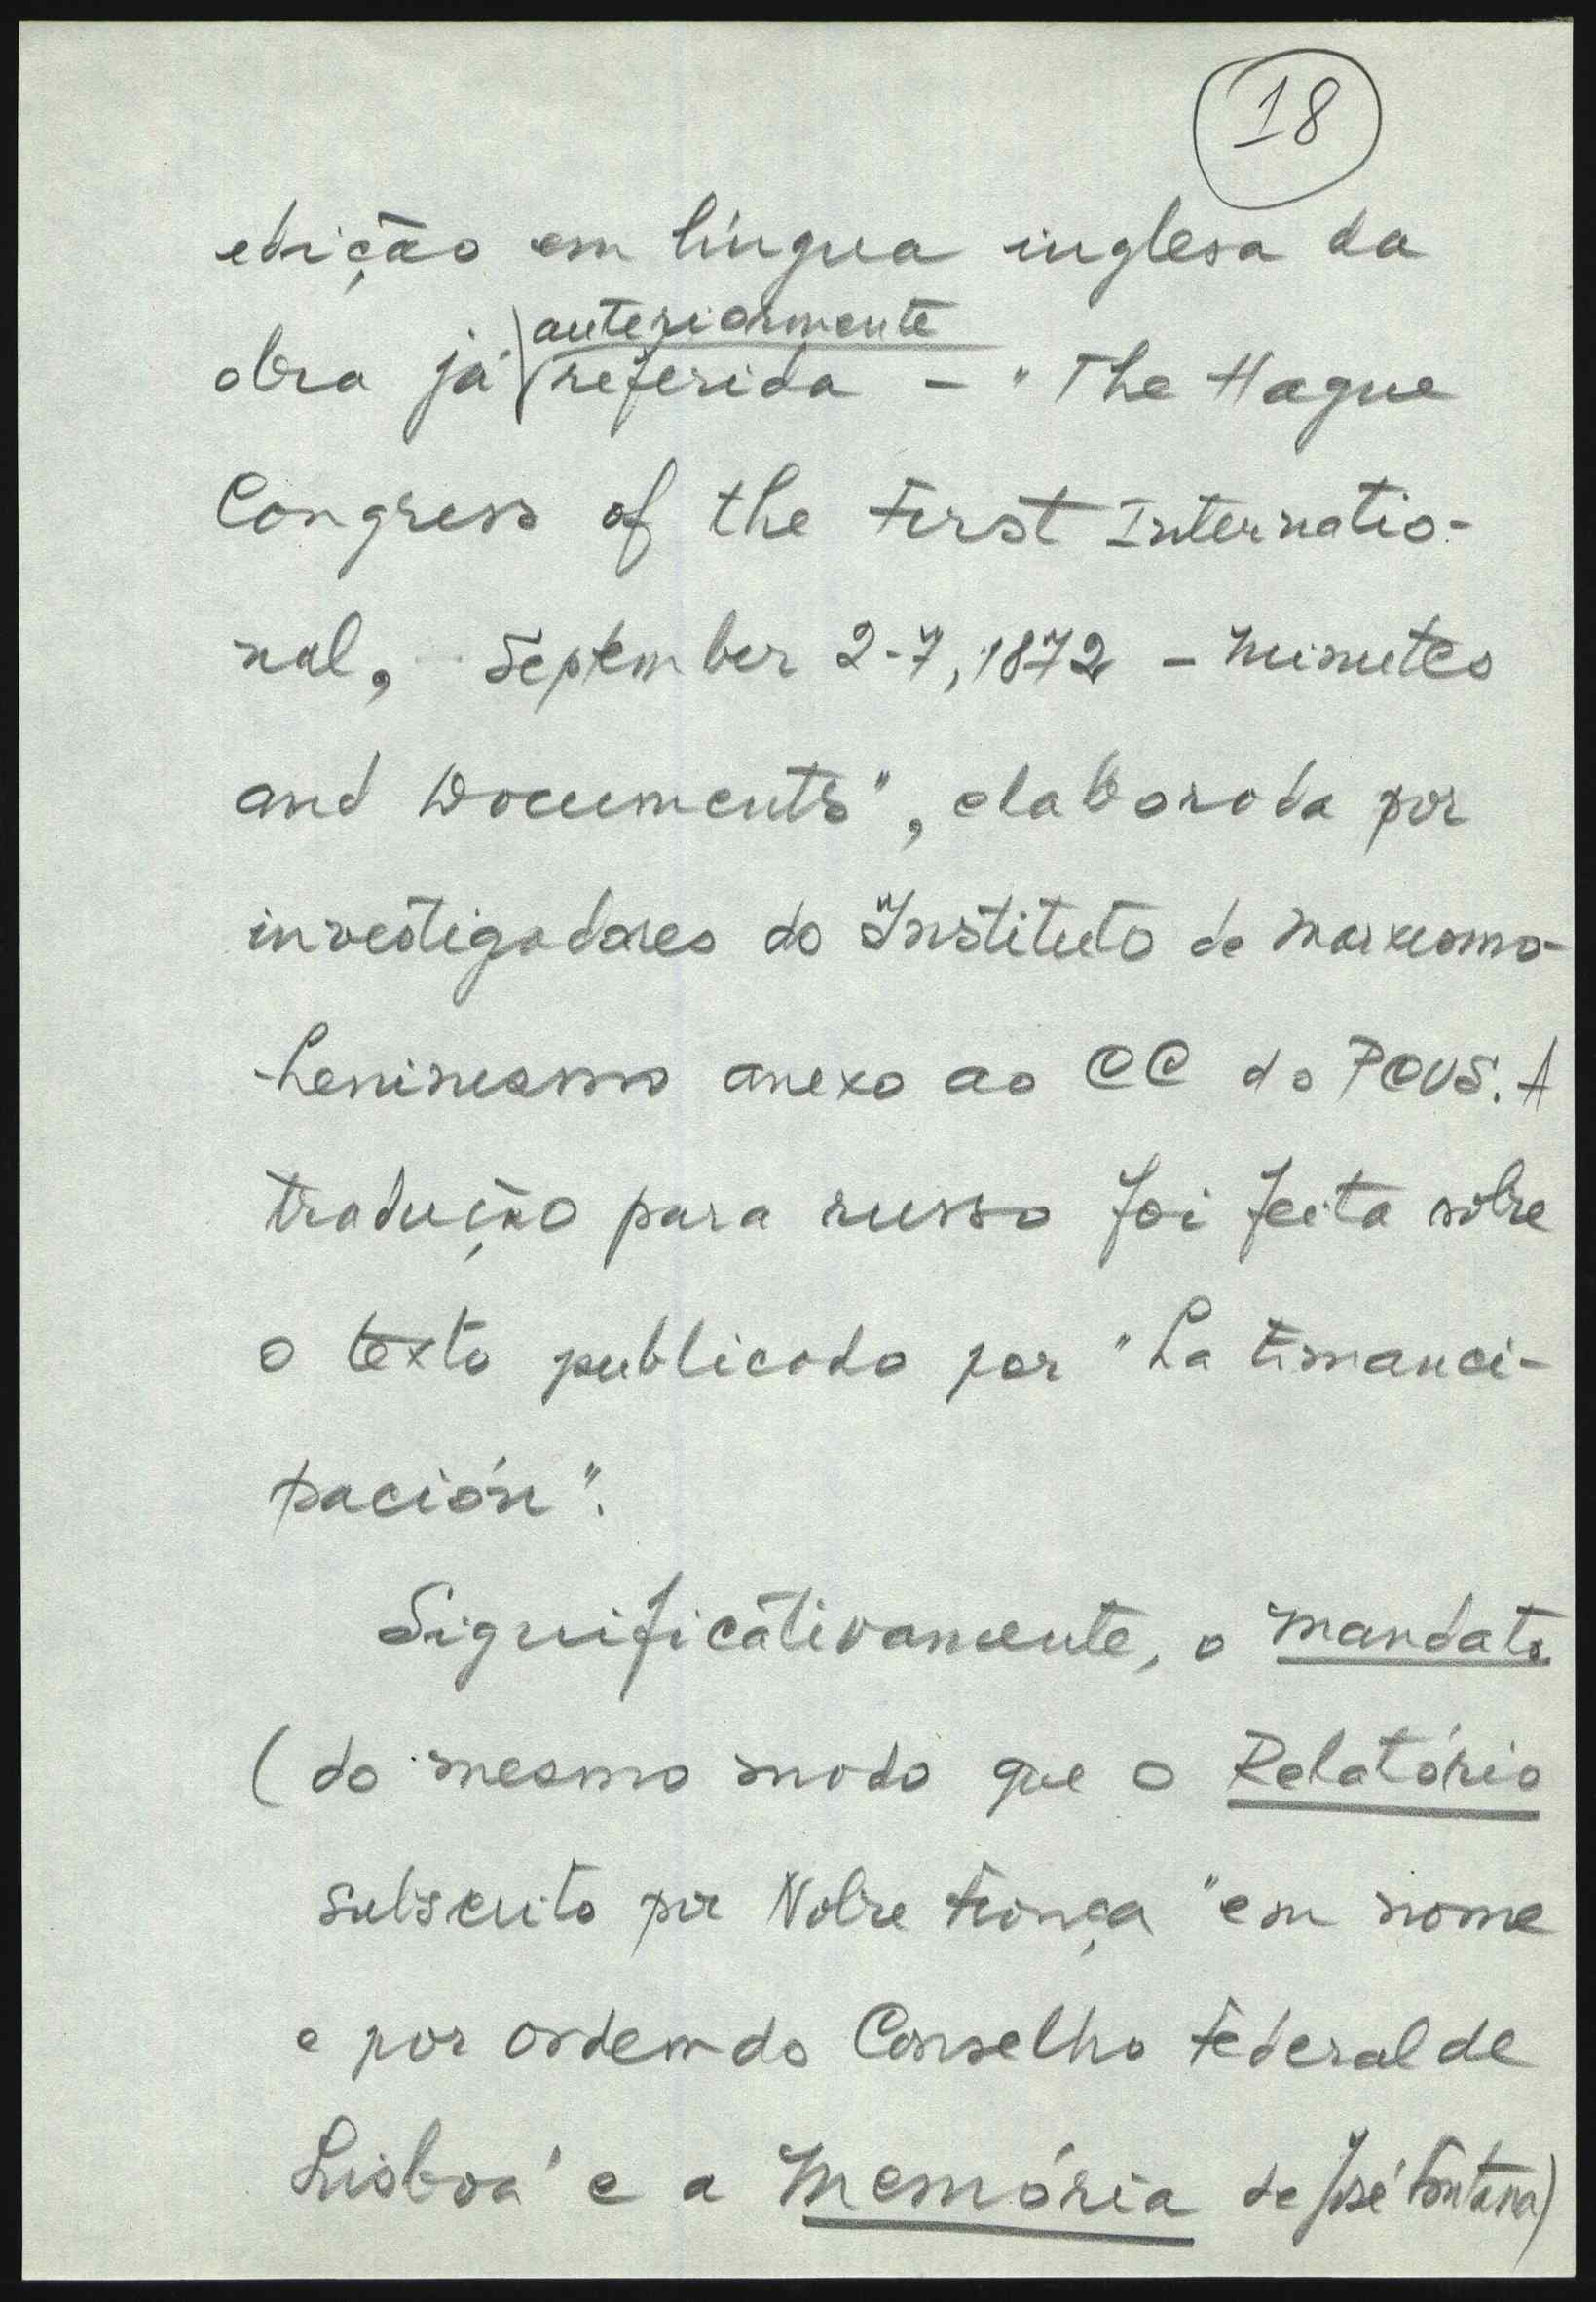 18
edição em língua inglesa da
anteriormente
obra já referida - "The Hague
Congress of the First Internatio-
nal, September 2-7, 1872 - Minutes
and Documents", elaborada por
investigadores do Instituto de Marxismo-
-Leninismo anexo ao CC do PCUS. A
tradução para russo foi feita sobre
o texto publicado por "La Emanci-
pación".
Significativamente, o mandato
(do mesmo modo que o Relatório
subscrito por Nobre França "em nome
e por ordem do Conselho Federal de
Lisboa" e a Memória de José Fontana)